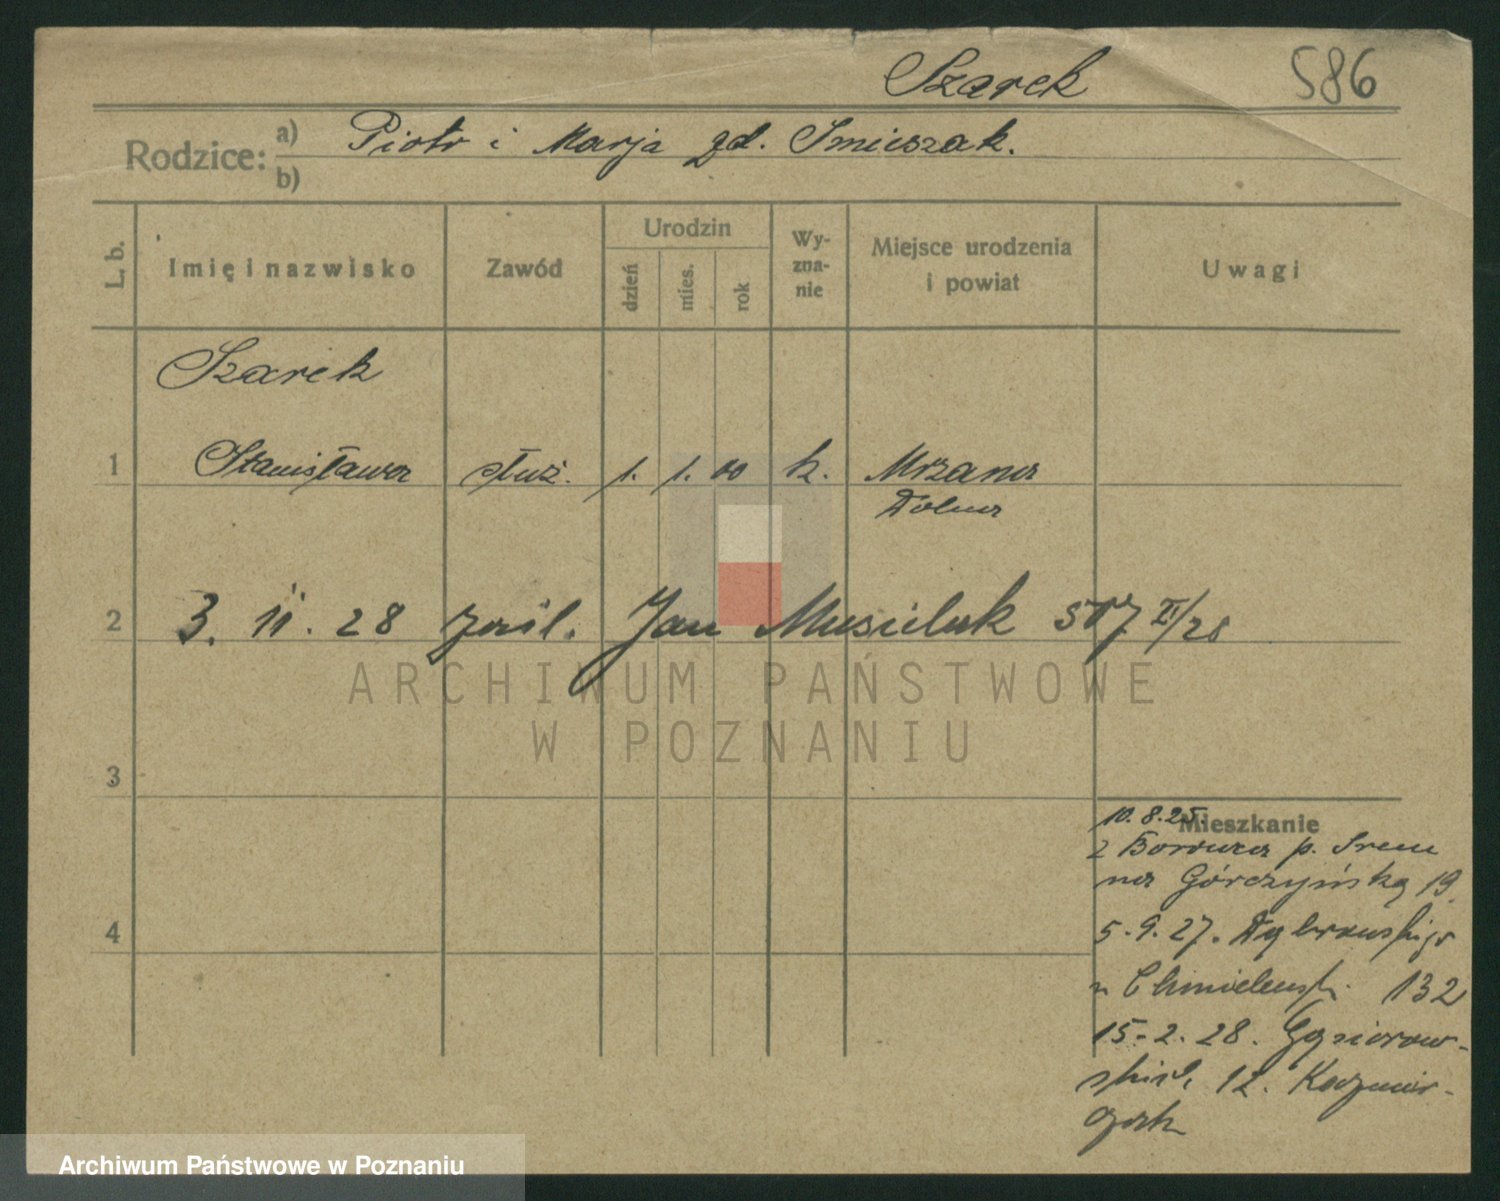 Szarek
586
Rodzice: a) Piotr i Marja zd. Śmieszak.
b)
L. b.
Imię i nazwisko
Zawód
Urodzin
dzień
mies.
rok
Wy-
zna-
nie
Miejsce urodzenia
i powiat
Uwagi
Szarek
1 Stanisława służ. 1. 1. 00 k. Mszana
Dolna
2 3. 11. 28 zaśl. Jan Musielak 507 II/28
ARCHIWUM PAŃSTWOWE
W POZNANIU
3
10. 8. 25. Mieszkanie
z p. Srem
na Górczyńską 19
4
5. 9. 27. Dąbrowskiego
132
15. 2. 28. Gąsiorow-
skich 12.
Archiwum Państwowe w Poznaniu